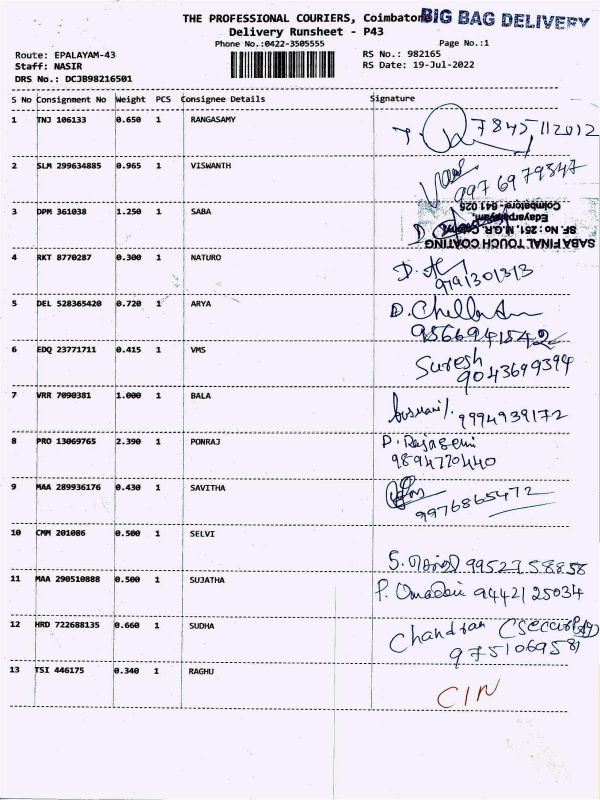 THE PROFESSIONAL COURIERS, Coimbatore
BIG BAG DELIVERY
Delivery Runsheet - P43
Phone No.:0422-3505555
Page No.:1
Route: EPALAYAM-43
RS No.: 982165
Staff: NASIR
RS Date: 19-Jul-2022
DRS No.: DCJB98216501
S No Consignment No Weight PCS Consignee Details Signature
1 TNJ 106133 0.650 1 RANGASAMY 7845112012
2 SLM 299634885 0.965 1 VISWANTH 9976979847
3 DPM 361038 1.250 1 SABA
SABA FINAL TOUCH COATING
SF. No : 251, M.G.R. Colony,
Edayarpalayam,
Coimbatore - 641 025
4 RKT 8770287 0.300 1 NATURO 9791301313
5 DEL 528365420 0.720 1 ARYA D. Chella
9566941542
6 EDQ 23771711 0.415 1 VMS Suresh
9043699394
7 VRR 7090381 1.000 1 BALA 9994939172
8 PRO 13069765 2.390 1 PONRAJ P. Rajaseni
9894770440
9 MAA 289936176 0.430 1 SAVITHA
9976865472
10 CMM 201086 0.500 1 SELVI
S. 9952758858
11 MAA 290510888 0.500 1 SUJATHA P. Omadevi 9442125034
12 HRD 722688135 0.660 1 SUDHA Chandran (Security)
9751069581
13 TSI 446175 0.340 1 RAGHU
CIN